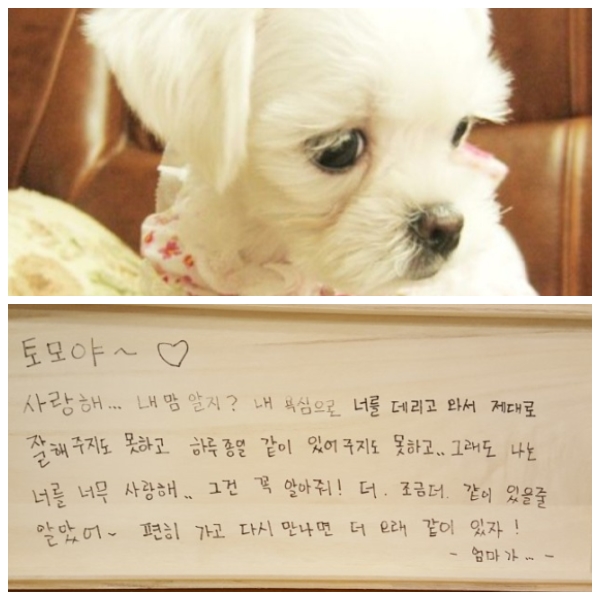 토모야~ ♡
사랑해... 내맘 알지? 내 욕심으로 너를 데리고 와서 제대로
잘해주지도 못하고 하루종일 같이 있어주지도 못하고.. 그래도 나는
너를 너무 사랑해.. 그건 꼭 알아줘! 더. 조금더. 같이 있을줄
알았어~ 편히 가고 다시 만나면 더 오래 같이 있자!
- 엄마가... -